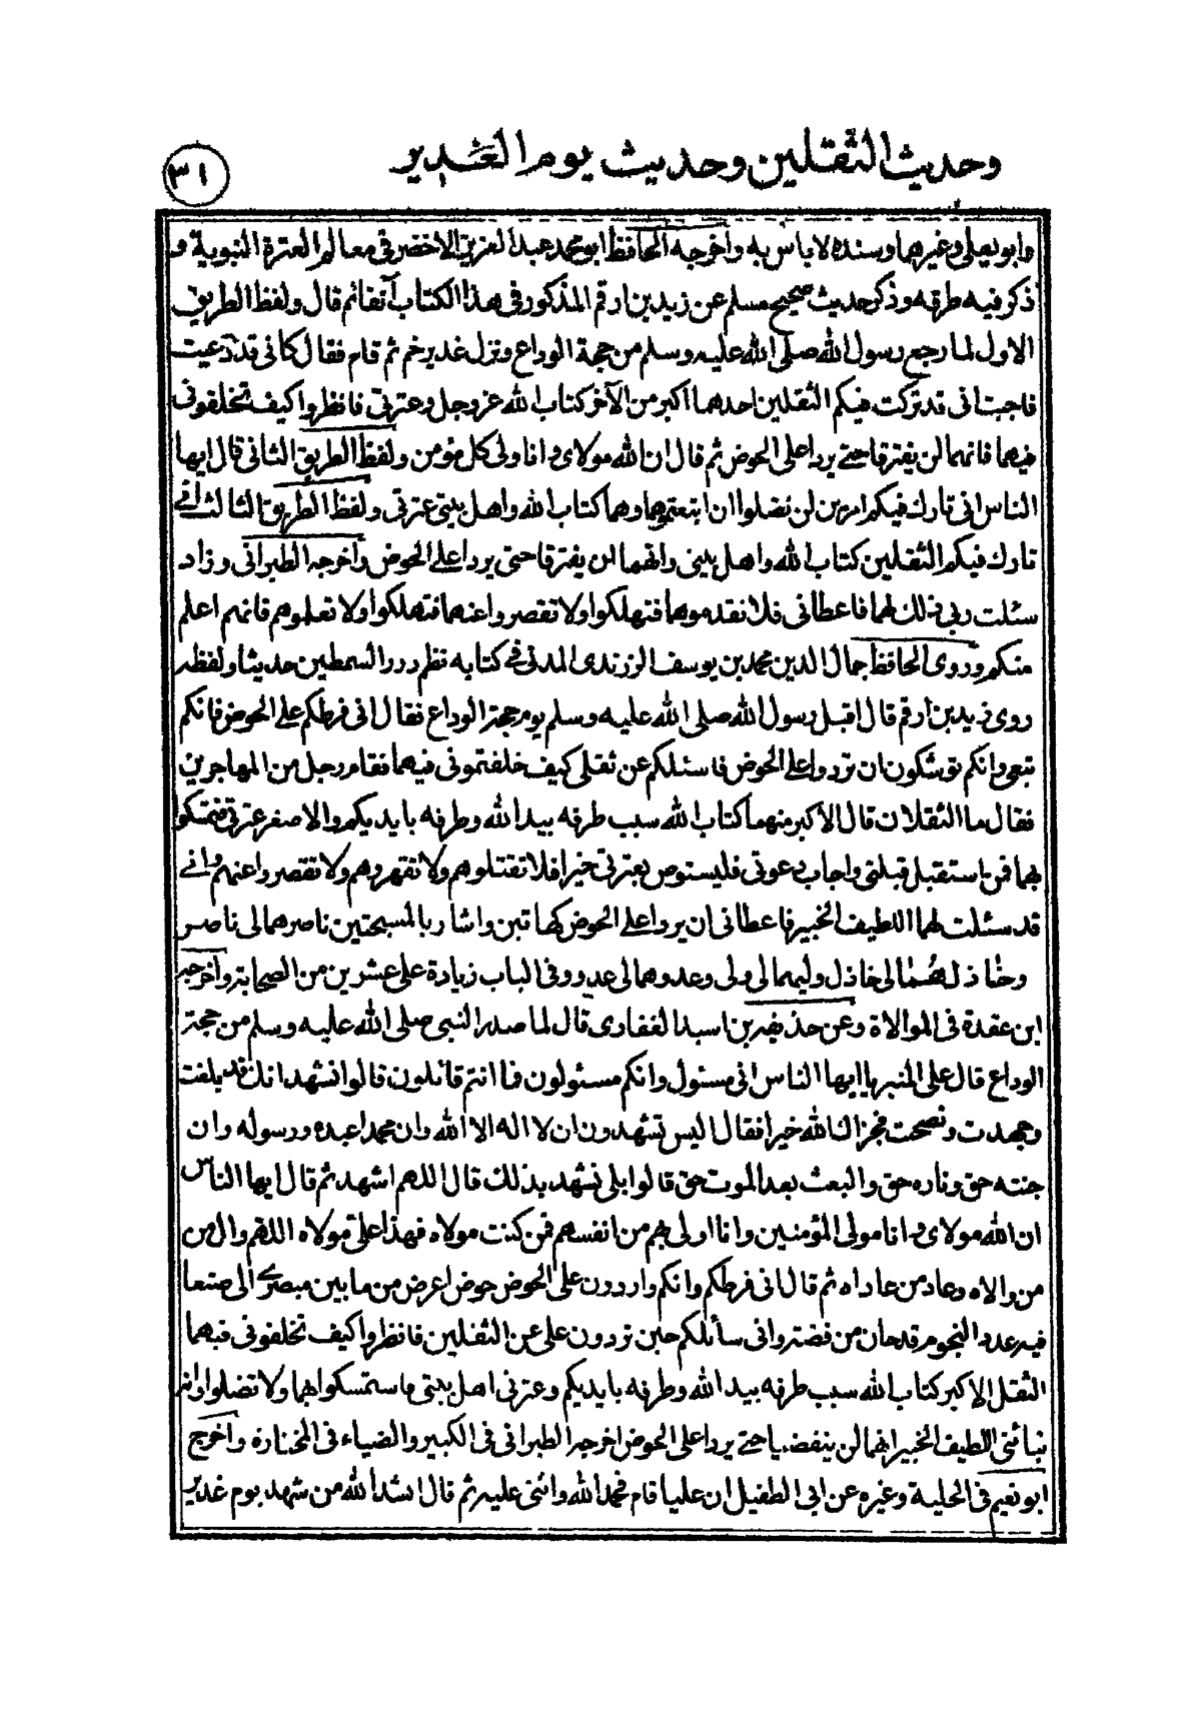 وحديث الثقلين وحديث يوم الغدير
٣١
وابو يعلى وغيرهما وسنده لا باس به واخرجه الحافظ ابو محمد عبد العزيز الاخضر في معالم العترة النبوية و
ذكر فيه طرقه وذكر حديث صحيح مسلم عن زيد بن ارقم المذكور في هذا الكتاب آنفا ثم قال ولفظ الطريق
الاول لما رجع رسول الله صلى الله عليه وسلم من حجة الوداع ونزل غدير خم ثم قام فقال كانى قد دعيت
فاجبت انى قد تركت فيكم الثقلين احدهما اكبر من الآخر كتاب الله عز وجل وعترتى فانظروا كيف تخلفونى
فيهما فانهما لن يفترقا حتے يردا على الحوض ثم قال ان الله مولاى وانا ولى كل مؤمن ولفظ الطريق الثانى قال ايها
الناس انى تارك فيكم امرين لن تضلوا ان اتبعتموهما وهما كتاب الله واهل بيتى عترتى ولفظ الطريق الثالث انے
تارك فيكم الثقلين كتاب الله واهل بيتى وانهما لن يفترقا حتى يردا علے الحوض واخرجه الطبرانى وزاد
سئلت ربى ذلك لهما فاعطانى فلا تقدموهما فتهلكوا ولا تقصروا عنهما فتهلكوا ولا تعلموهم فانهم اعلم
منكم وروى الحافظ جمال الدين محمد بن يوسف الزرندى المدنى فے كتابه نظم درر السمطين حديثا ولفظه
روى زيد بن ارقم قال اقبل رسول الله صلى الله عليه وسلم يوم حجة الوداع فقال انى فرطكم علے الحوض فانكم
تبعى وانكم توشكون ان تردوا علے الحوض فاسئلكم عن ثقلى كيف خلفتمونى فيهما فقام رجل من المهاجرين
فقال ما الثقلان قال الاكبر منهما كتاب الله سبب طرفه بيد الله وطرفه بايديكم والاصغر عترتى فتمسكوا
بهما فمن استقبل قبلتى واجاب دعوتى فليستوص بعترتى خيرا فلا تقتلوهم ولا تقهروهم ولا تقصروا عنهم وانے
قد سئلت لهما اللطيف الخبير فاعطانى ان يردا علے الحوض كهاتين واشار بالمسبحتين ناصرهما لى ناصر
وخاذلهما لى خاذل وليهما لى ولى وعدوهما لى عدو وفى الباب زيادة على عشرين من الصحابة واخرجه
ابن عقدة فى الموالاة وعن حذيفة بن اسيد الغفارى قال لما صدر النبى صلى الله عليه وسلم من حجة
الوداع قال على المنبر يا ايها الناس انى مسئول وانكم مسئولون فما انتم قائلون قالوا نشهد انك قد بلغت
وجهدت ونصحت فجزاك الله خيرا فقال اليس تشهدون ان لا اله الا الله وان محمدا عبده ورسوله وان
جنته حق وناره حق والبعث بعد الموت حق قالوا بلى نشهد بذلك قال اللهم اشهد ثم قال ايها الناس
ان الله مولاى وانا مولى المؤمنين وانا اولى بهم من انفسهم فمن كنت مولاه فهذا على مولاه اللهم وال من
من والاه وعاد من عاداه ثم قال انى فرطكم وانكم واردون على الحوض حوض اعرض من ما بين بصرے الى صنعا
فيه عدد النجوم قدحان من فضة وانى سائلكم حين تردون على عن الثقلين فانظروا كيف تخلفونى فيهما
الثقل الاكبر كتاب الله سبب طرفه بيد الله وطرفه بايديكم وعترتى اهل بيتى فاستمسكوا بهما ولا تضلوا وانه
نبائنى اللطيف الخبير انهما لن ينقضيا حتے يردا على الحوض اخرجه الطبرانى فى الكبير والضياء فى المختارة واخرج
ابو نعيم فى الحلية وغيره عن ابى الطفيل ان عليا قام فحمد الله واثنى عليه ثم قال انشد الله من شهد يوم غدير